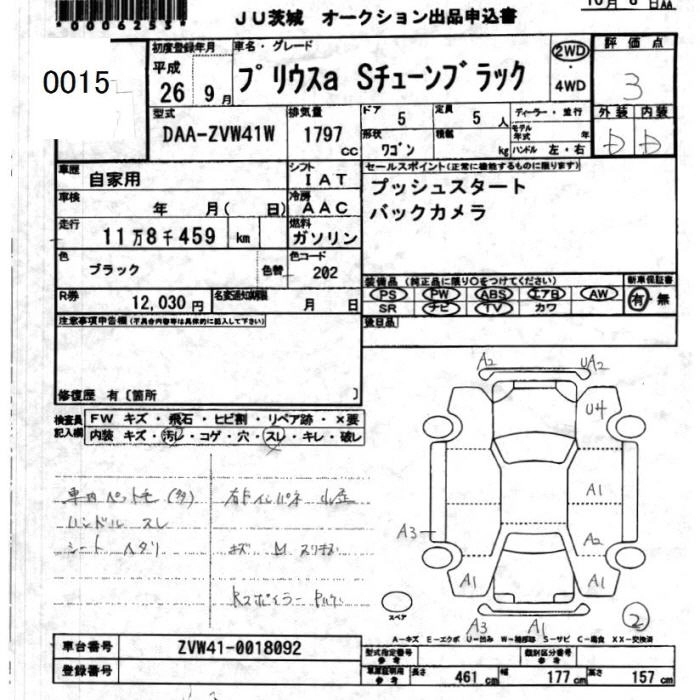 *0006253*
JU茨城 オークション出品申込書
10月 6日AA
0015
初度登録年月
平成
26年 9月
車名・グレード
プリウスa Sチューンブラック
2WD
・
4WD
評価点
3
外装 内装
D D
型式
DAA-ZVW41W
排気量
1797
cc
ドア
5
定員
5人
形状
ワゴン
積載
kg
ディーラー・並行
モデル年式 年
ハンドル 左・右
車歴
自家用
シフト
IAT
セールスポイント(正常に機能するものに限ります)
プッシュスタート
バックカメラ
車検
年 月( 日)
冷房
AAC
走行
11万8千459 km
燃料
ガソリン
色
ブラック
色替
色コード
202
装備品(純正品に限り○をつけてください)
PS PW ABS エアB AW
SR ナビ TV カワ
新車保証書
有・無
R券
12,030円
名変通知期限
月 日
後日品
注意事項申告欄(不具合内容等は具体的に記入して下さい)
修復歴 有〔箇所 〕
検査員
記入欄
FW キズ・飛石・ヒビ割・リペア跡・×要
内装 キズ・汚レ・コゲ・穴・スレ・キレ・破レ
ハンドル スレ
シート ヘタリ
A2
UA2
U4
A1
A3
A2
A1
A1
A3
A1
2
スペア
A−キズ E−エクボ U−凹み W−補修跡 S−サビ C−腐食 XX−交換済
車台番号
ZVW41-0018092
登録番号
型式指定番号
参考
類別区分番号
参考
車庫証明用
参考
長さ
461 cm
幅
177 cm
高さ
157 cm